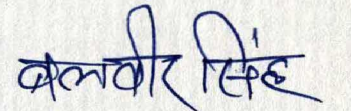 बलवीर सिंह